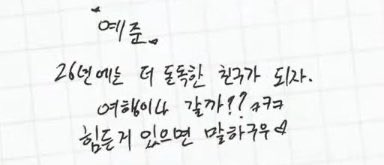 "예준"
26년에는 더 돈독한 친구가 되자.
여행이나 갈까?? ㅋㅋㅋ
힘든거 있으면 말하구우♡